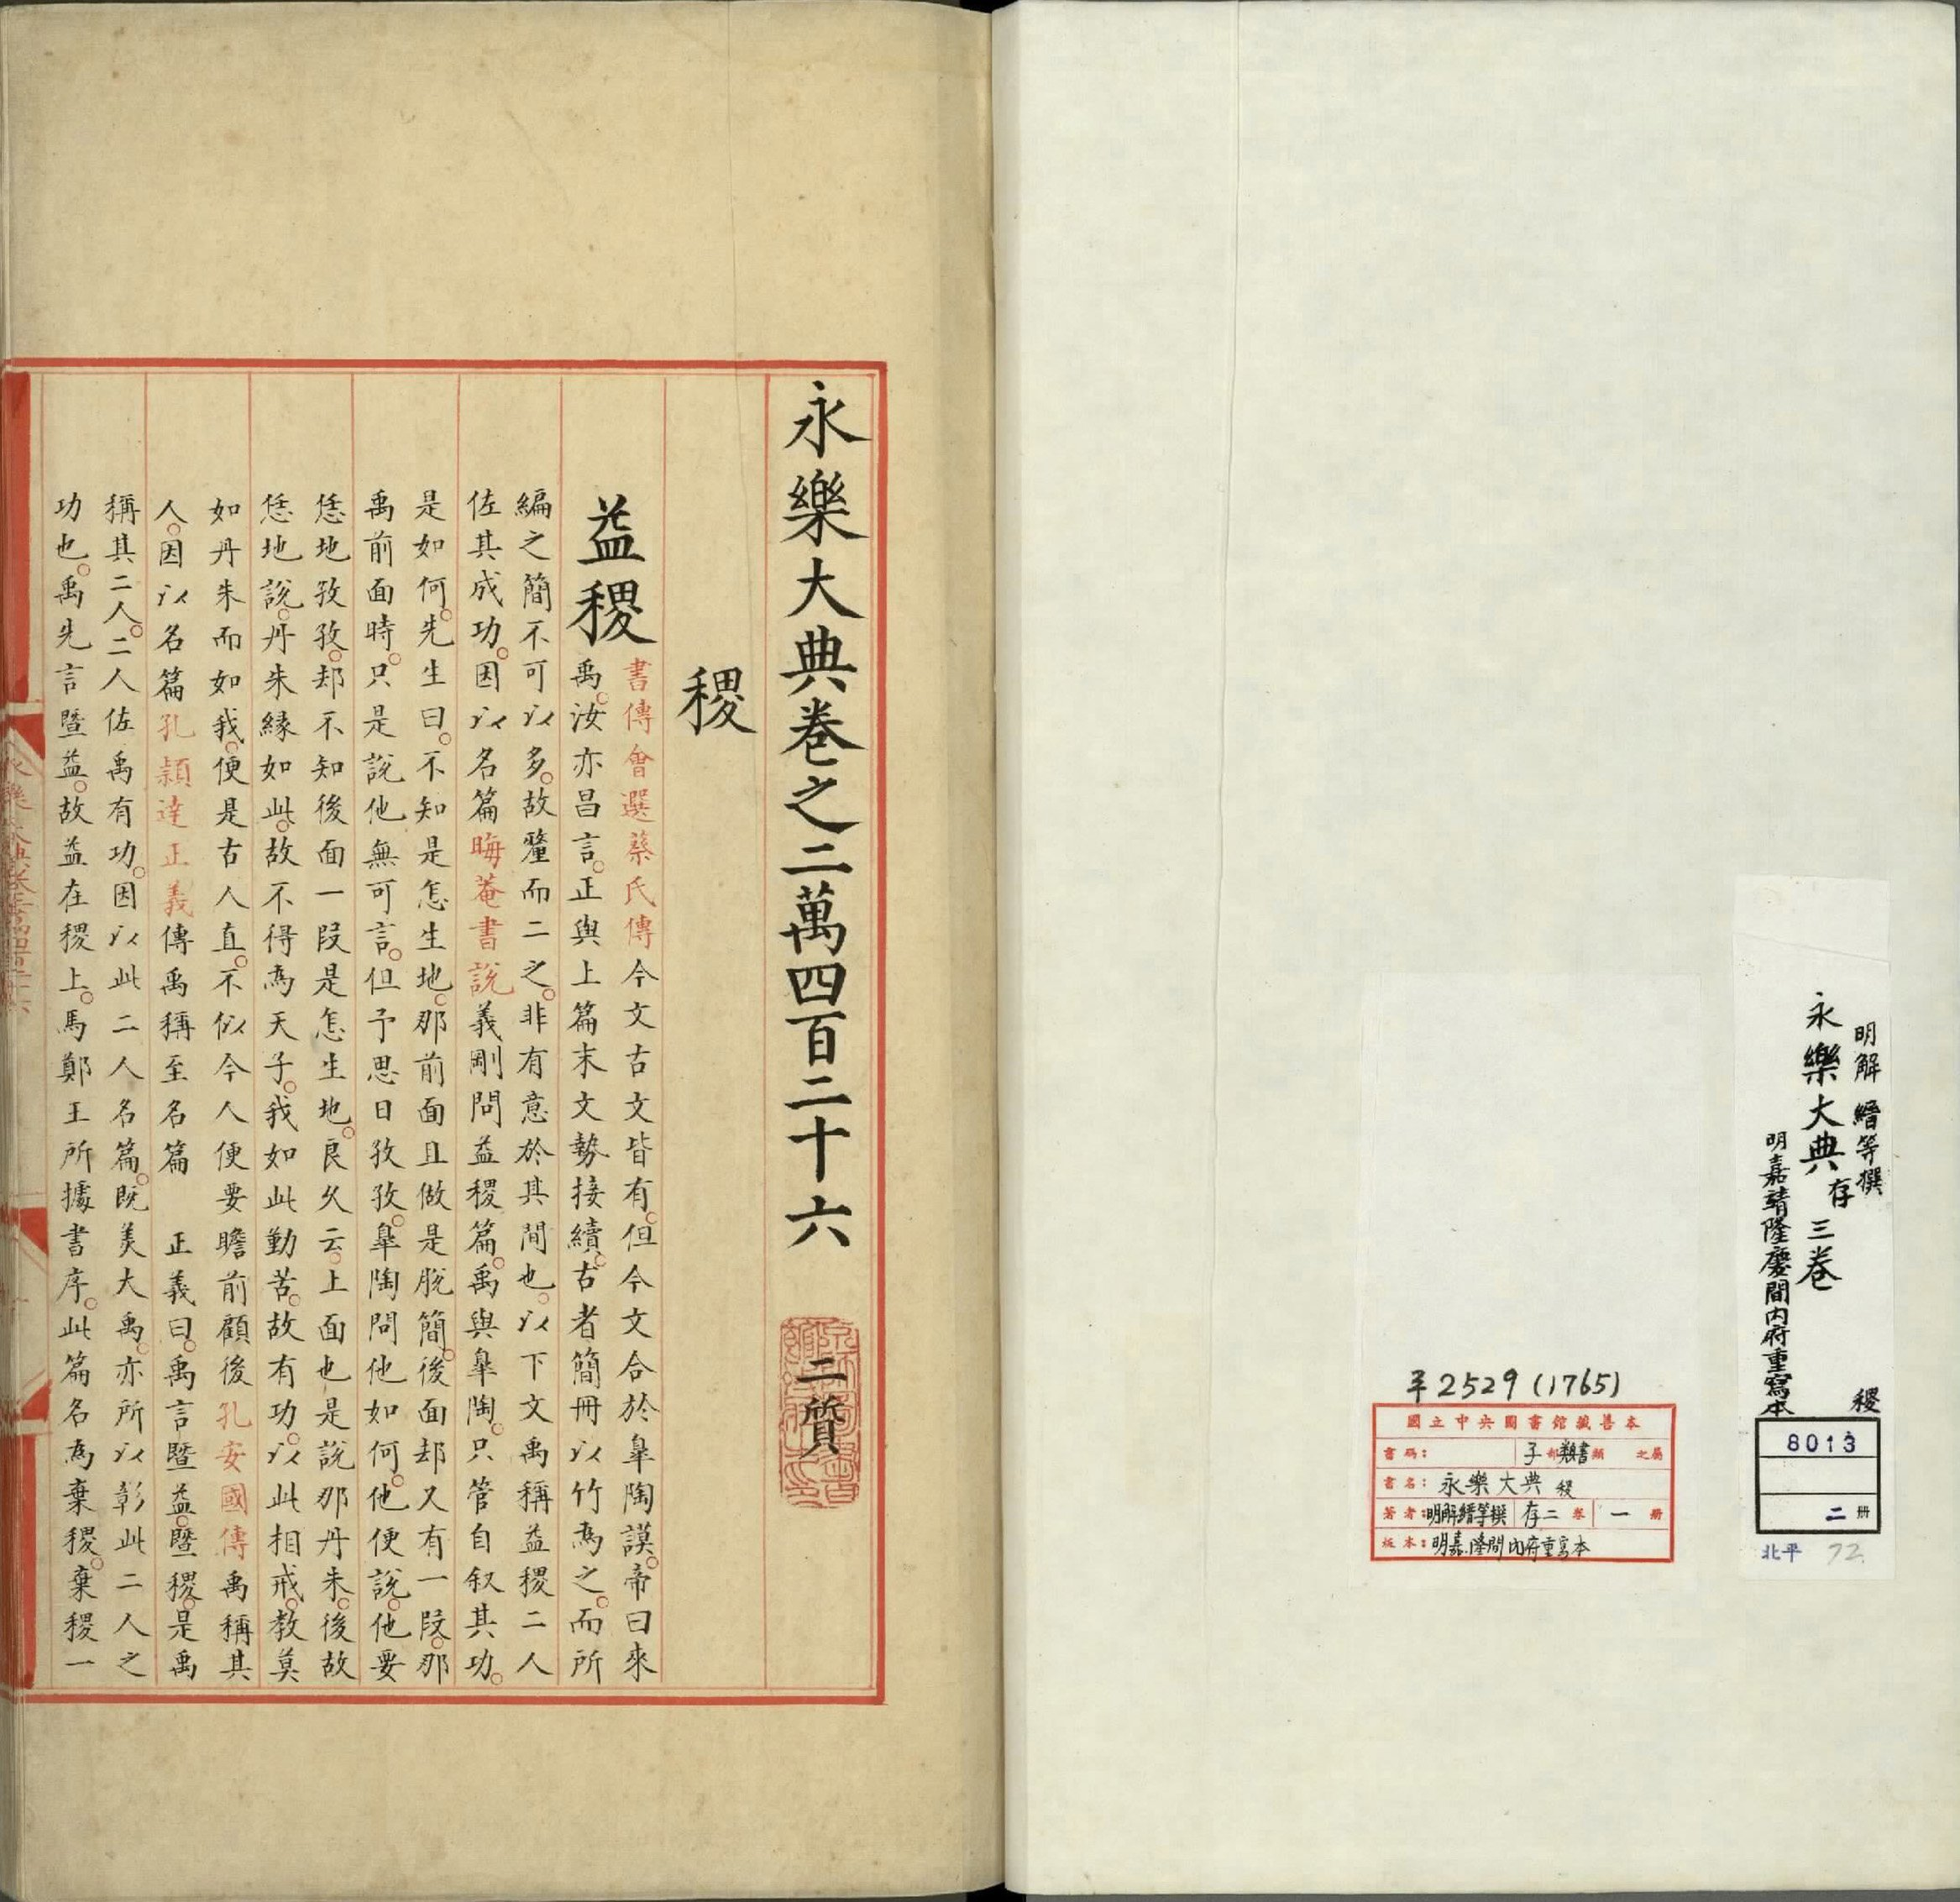 永樂大典卷之二萬四百二十六 二質
稷
益稷
書傳會選蔡氏傳今文古文皆有但今文合於臯陶謨帝曰來
禹汝亦昌言正與上篇末文勢接續古者簡冊以竹爲之而所
編之簡不可以多故釐而二之非有意於其間也以下文禹稱益稷二人
佐其成功因以名篇晦菴書說義剛問益稷篇禹與臯陶只管自叙其功
是如何先生曰不知是怎生地那前面且做是脫簡後面却又有一段那
禹前面時只是說他無可言但予思日孜孜臯陶問他如何他便說他要
恁地孜孜却不知後面一段是怎生地良久云上面也是說那丹朱後故
恁地說丹朱緣如此故不得爲天子我如此勤苦故有功以此相戒教莫
如丹朱而如我便是古人直不似今人便要瞻前顧後孔安國傳禹稱其
人因以名篇孔穎達正義傳禹稱至名篇 正義曰禹言暨益暨稷是禹
稱其二人二人佐禹有功因以此二人名篇旣美大禹亦所以彰此二人之
功也禹先言暨益故益在稷上馬鄭王所據書序此篇名爲棄稷棄稷一
明解縉等撰
永樂大典存三卷
明嘉靖隆慶間內府重寫本
稷
8013
二 册
北平 72
平2529(1765)
國立中央圖書館藏善本
書碼： 子部類書類 之屬
書名：永樂大典 稷
著者：明解縉等撰 存二卷 一册
板本：明嘉隆間內府重寫本